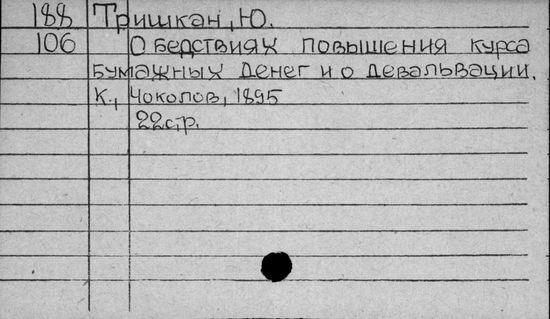 188 Тришкан, Ю.
106 О бедствиях повышения курса
бумажных денег и о девальвации.
К., Чоколов, 1895
22 с,р.